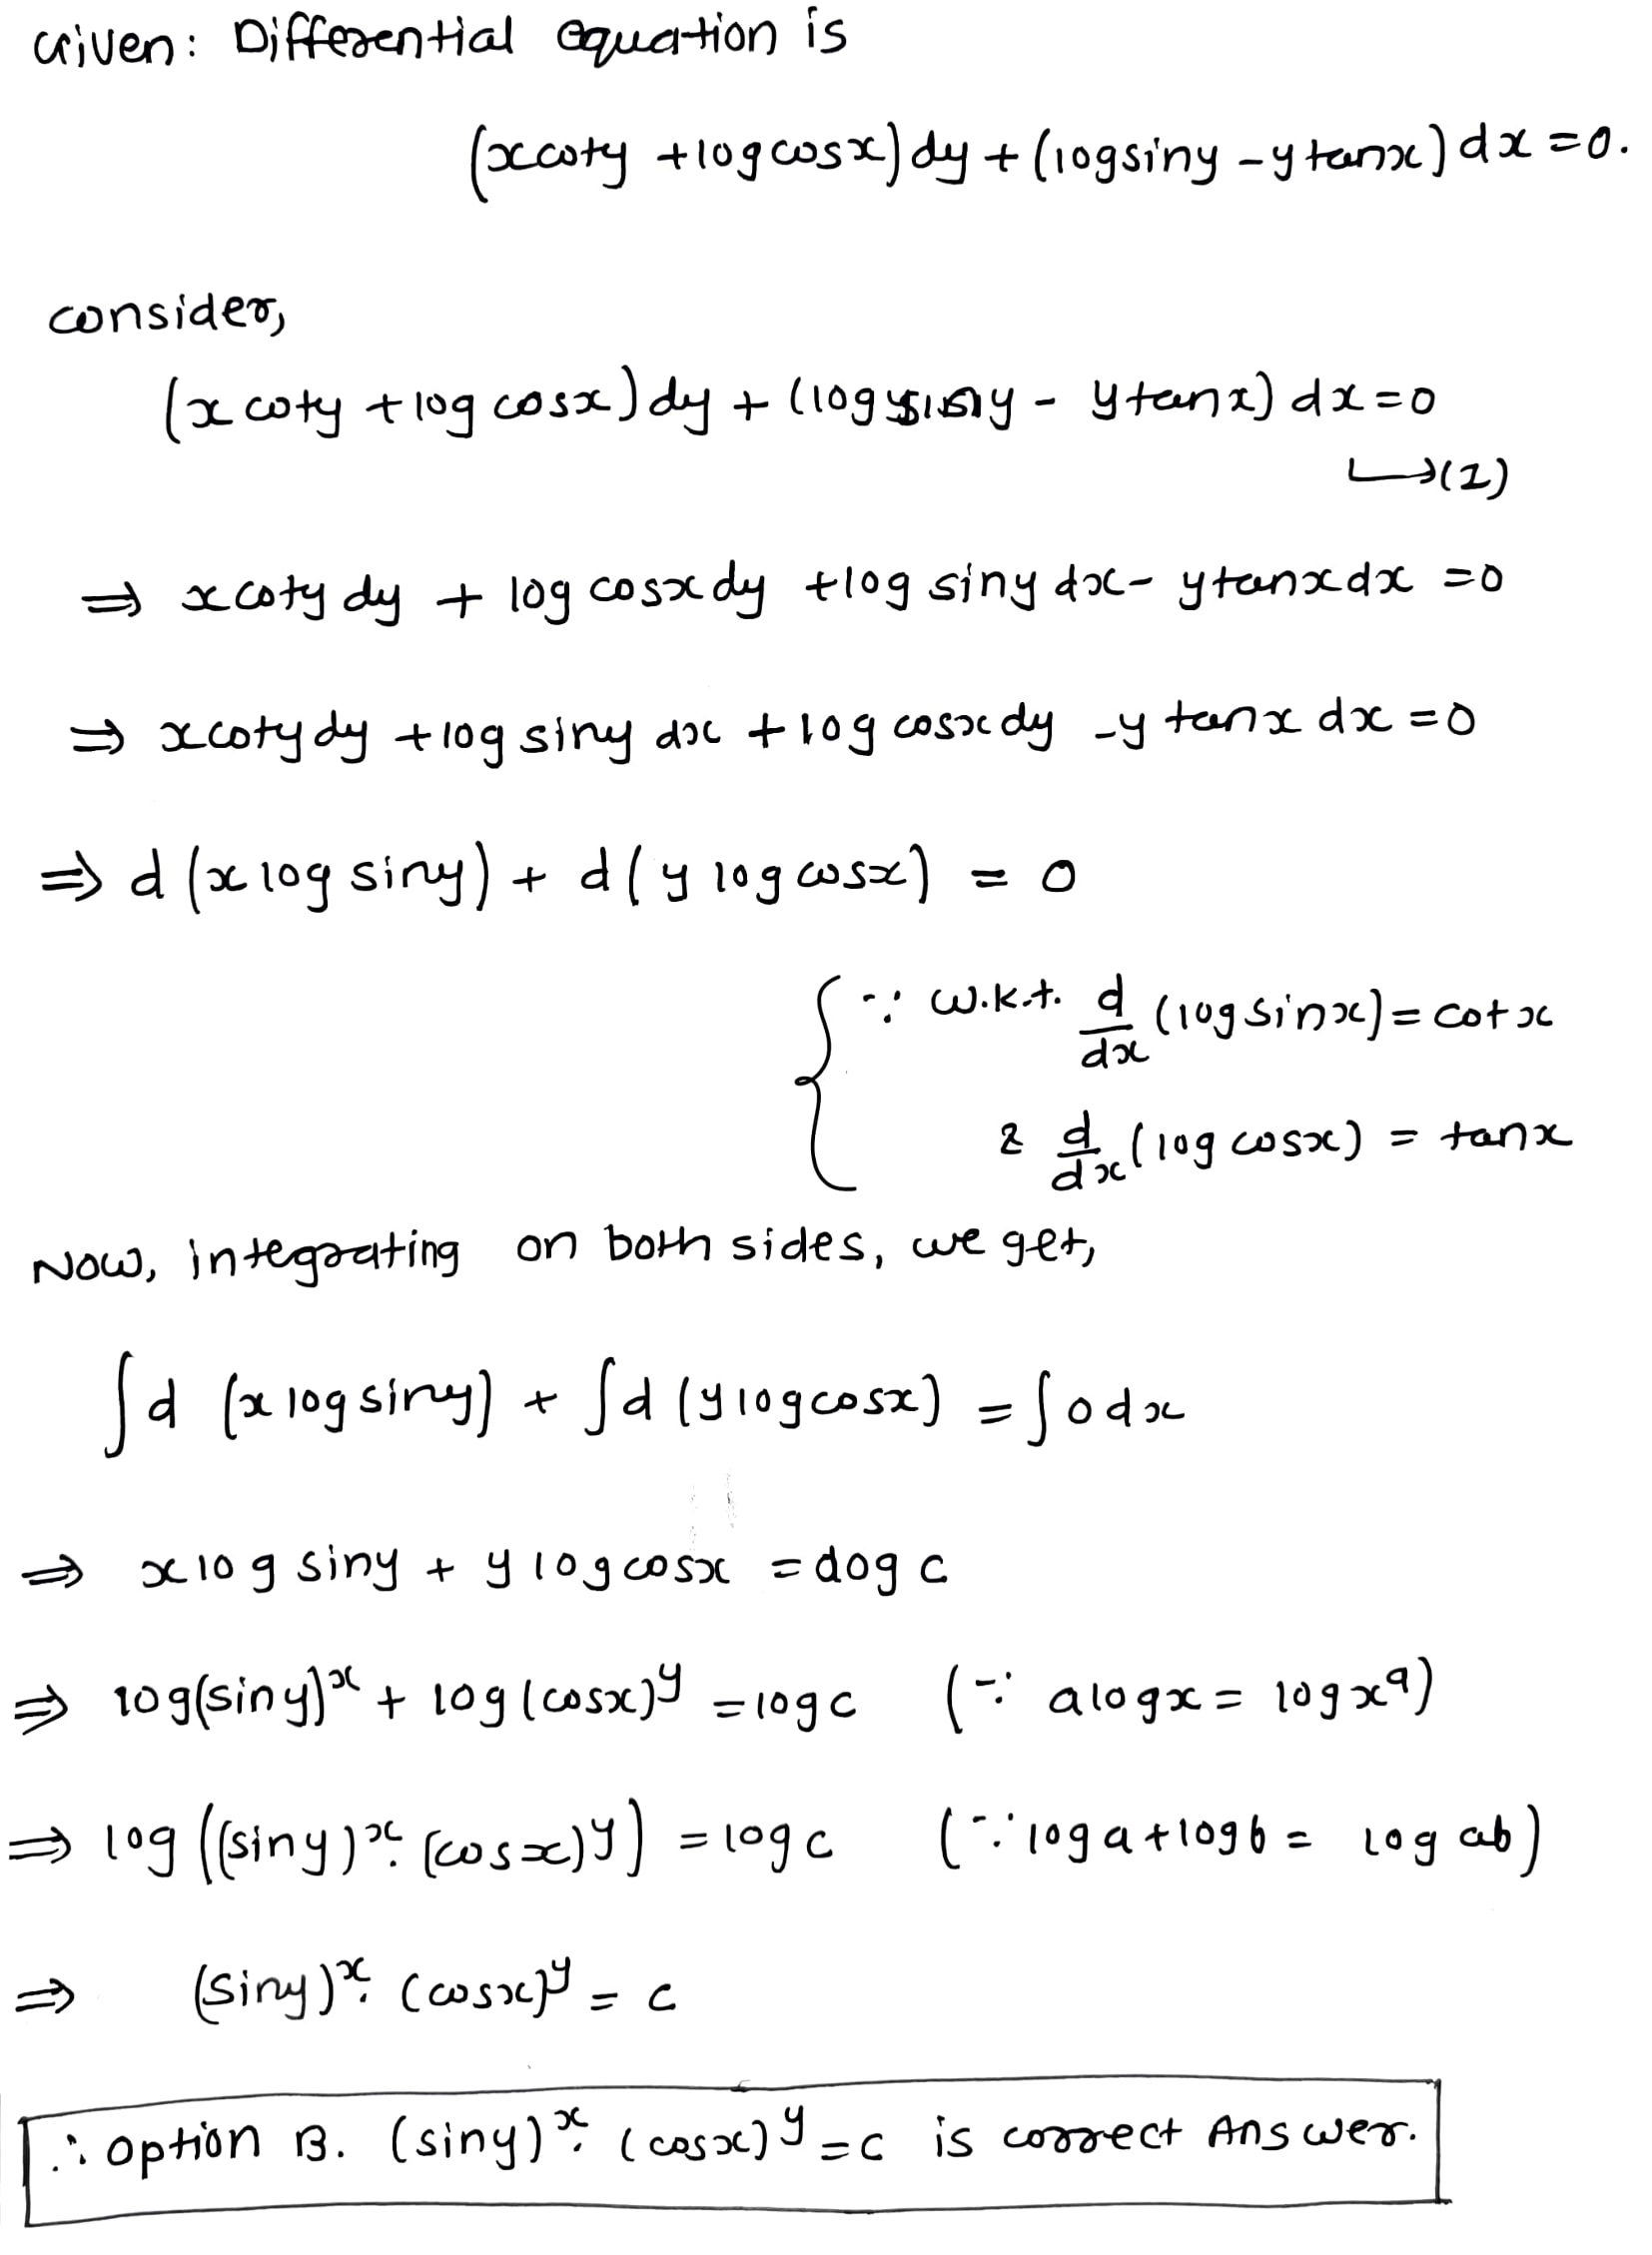 Given: Differential equation is
(x coty + log cosx) dy + (log siny - y tanx) dx = 0.
consider,
(x coty + log cosx) dy + (log siny - y tanx) dx = 0
↳(1)
⇒ x coty dy + log cosx dy + log siny dx - y tanx dx = 0
⇒ x coty dy + log siny dx + log cosx dy - y tanx dx = 0
⇒ d (x log siny) + d (y log cosx) = 0
∵ w.k.t. d/dx (log sinx) = cotx
& d/dx (log cosx) = tanx
Now, integrating on both sides, we get,
∫d (x log siny) + ∫d (y log cosx) = ∫0 dx
⇒ x log siny + y log cosx = log c
⇒ log(siny)^x + log (cosx)^y = log c (∵ a log x = log x^a)
⇒ log ((siny)^x . (cosx)^y) = log c (∵ log a + log b = log ab)
⇒ (siny)^x . (cosx)^y = c
∴ option B. (siny)^x . (cosx)^y = c is correct Answer.